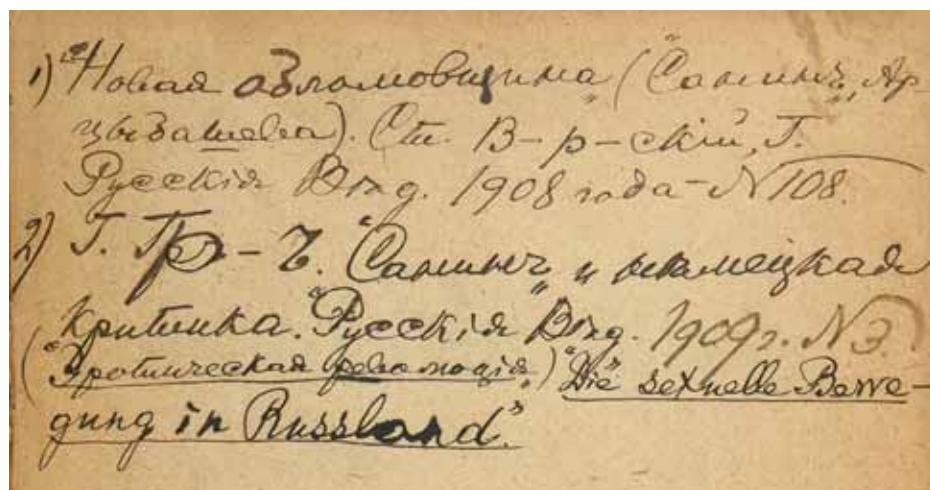 1) "Новая обломовщина" ("Санинъ" Ар-
цыбашева). Ст. В-р-скій, Г.
Русскія Вѣд. 1908 года - N 108.
2) Г. Гр-ъ. "Санинъ" и нѣмецкая
критика. "Русскія Вѣд. 1909 г. N 3.
("Эротическая революція") "Die sexuelle Bewe-
gung in Russland."